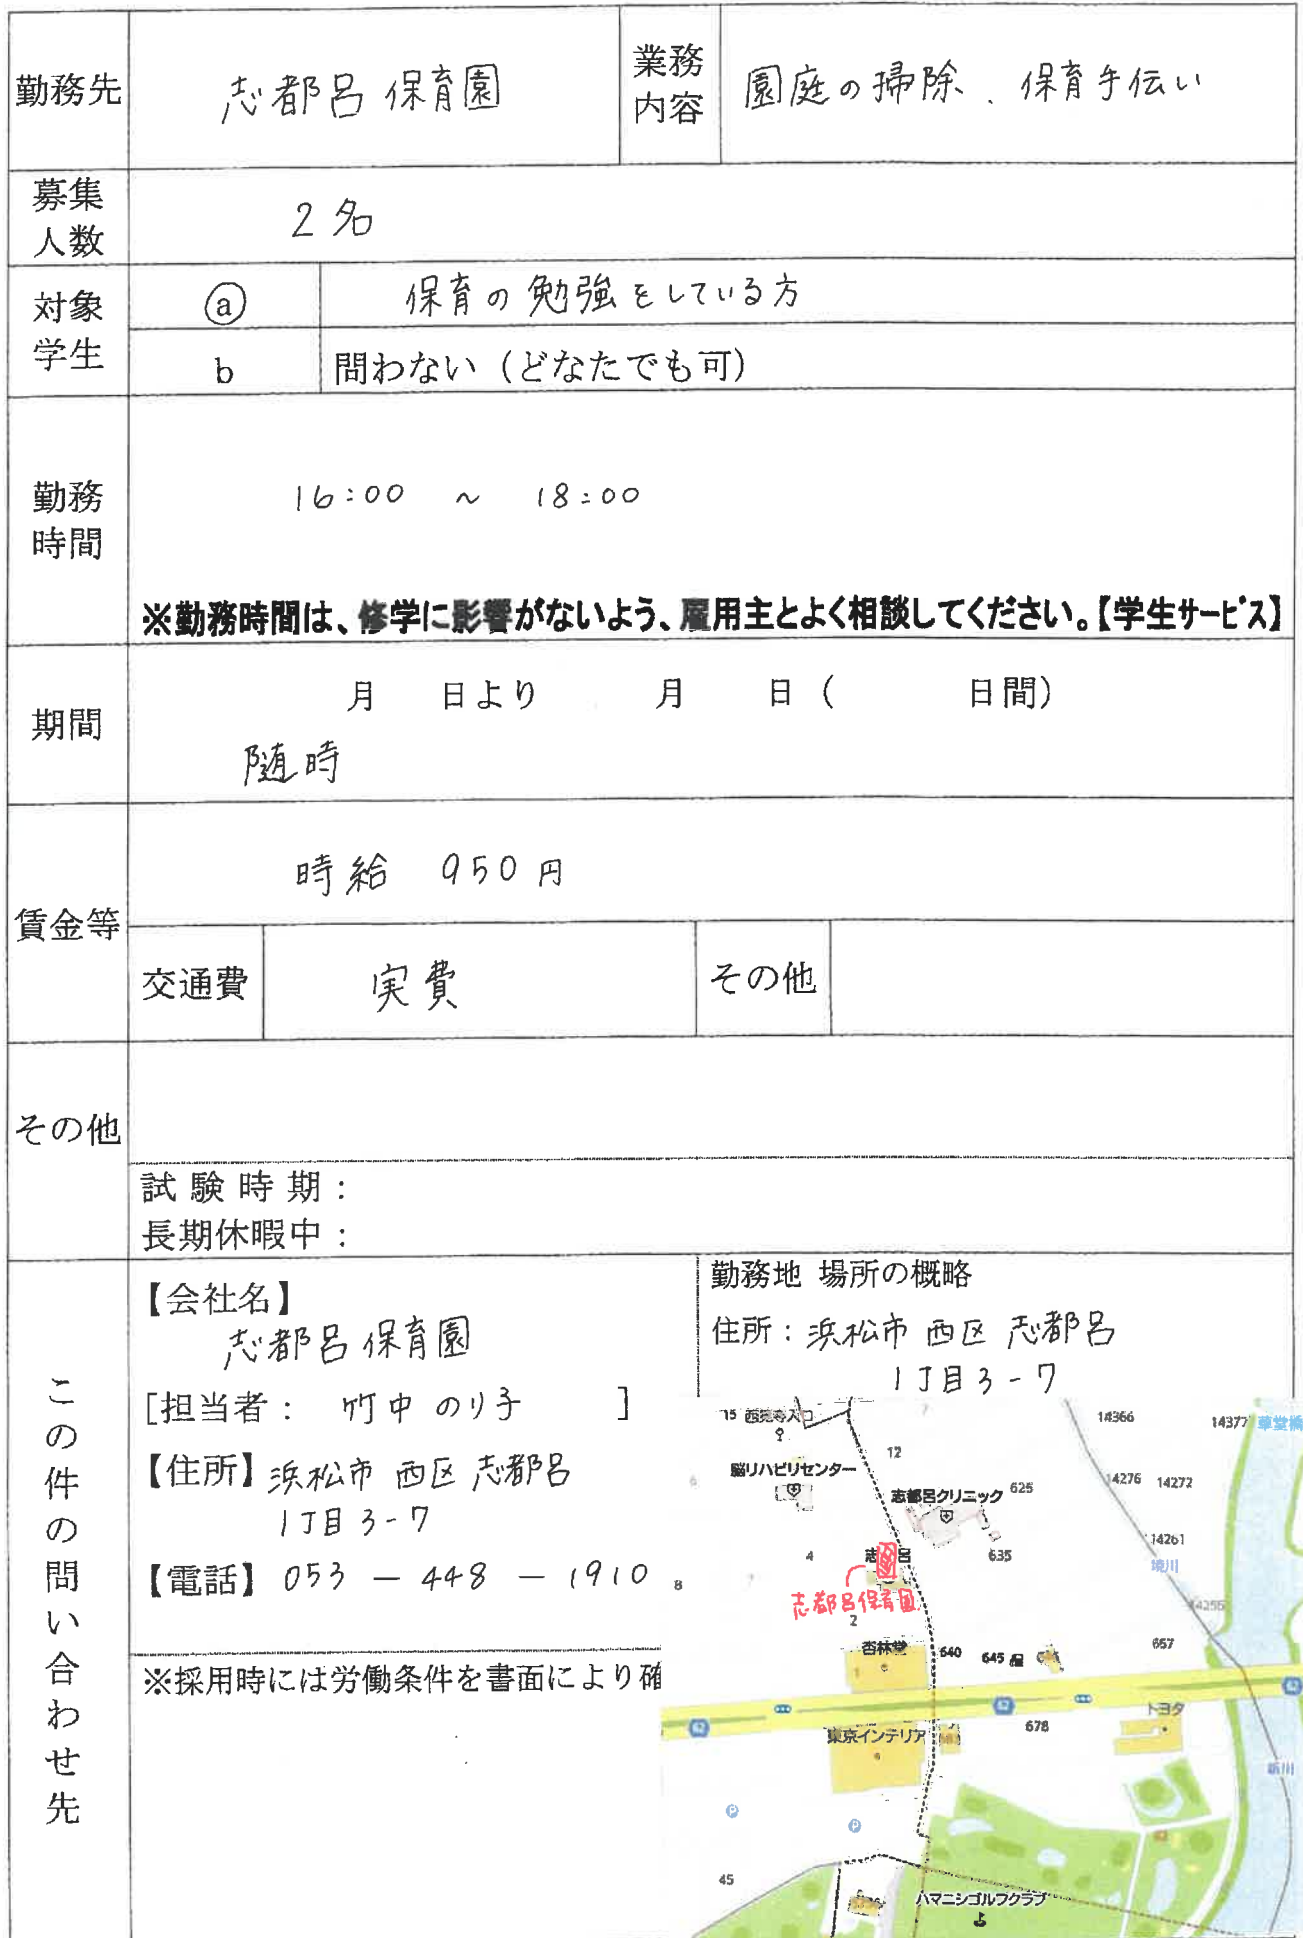 勤務先
志都呂保育園
業務
内容
園庭の掃除、保育手伝い
募集
人数
2名
対象
学生
a
保育の勉強をしている方
b
問わない（どなたでも可）
勤務
時間
16:00 ～ 18:00
※勤務時間は、修学に影響がないよう、雇用主とよく相談してください。【学生サービス】
期間
月 日より 月 日（ 日間）
随時
賃金等
時給 950円
交通費
実費
その他
その他
試験時期：
長期休暇中：
この件の問い合わせ先
【会社名】
志都呂保育園
[担当者： 竹中 のり子 ]
【住所】浜松市 西区 志都呂
1丁目3-7
【電話】053-448-1910
※採用時には労働条件を書面により確
勤務地 場所の概略
住所：浜松市 西区 志都呂
1丁目3-7
15 西光寺入口
7
14366
14377
草堂橋
12
6
脳リハビリセンター
志都呂クリニック
625
14276
14272
14261
境川
4
志 呂
635
8
志都呂保育園
2
14255
杏林堂
640
645
657
1
62
62
62
トヨタ
東京インテリア
678
新川
P
P
45
ハマニシゴルフクラブ